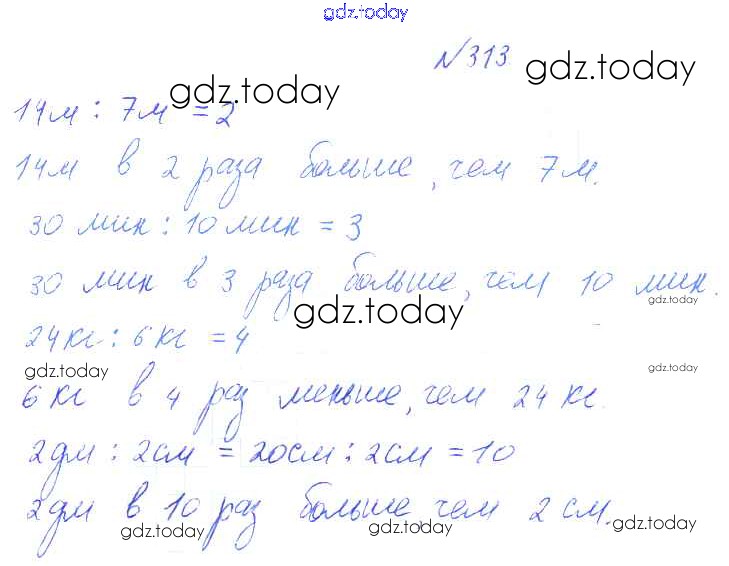 gdz.today
№313 gdz.today
gdz.today
14м : 7м = 2
14м в 2 раза больше, чем 7м.
30 мин : 10 мин = 3
30 мин в 3 раза больше, чем 10 мин.
gdz.today
gdz.today
24кг : 6кг = 4
gdz.today
gdz.today
6 кг в 4 раз меньше, чем 24 кг.
2дм : 2см = 20см : 2см = 10
2дм в 10 раз больше чем 2 см.
gdz.today
gdz.today
gdz.today